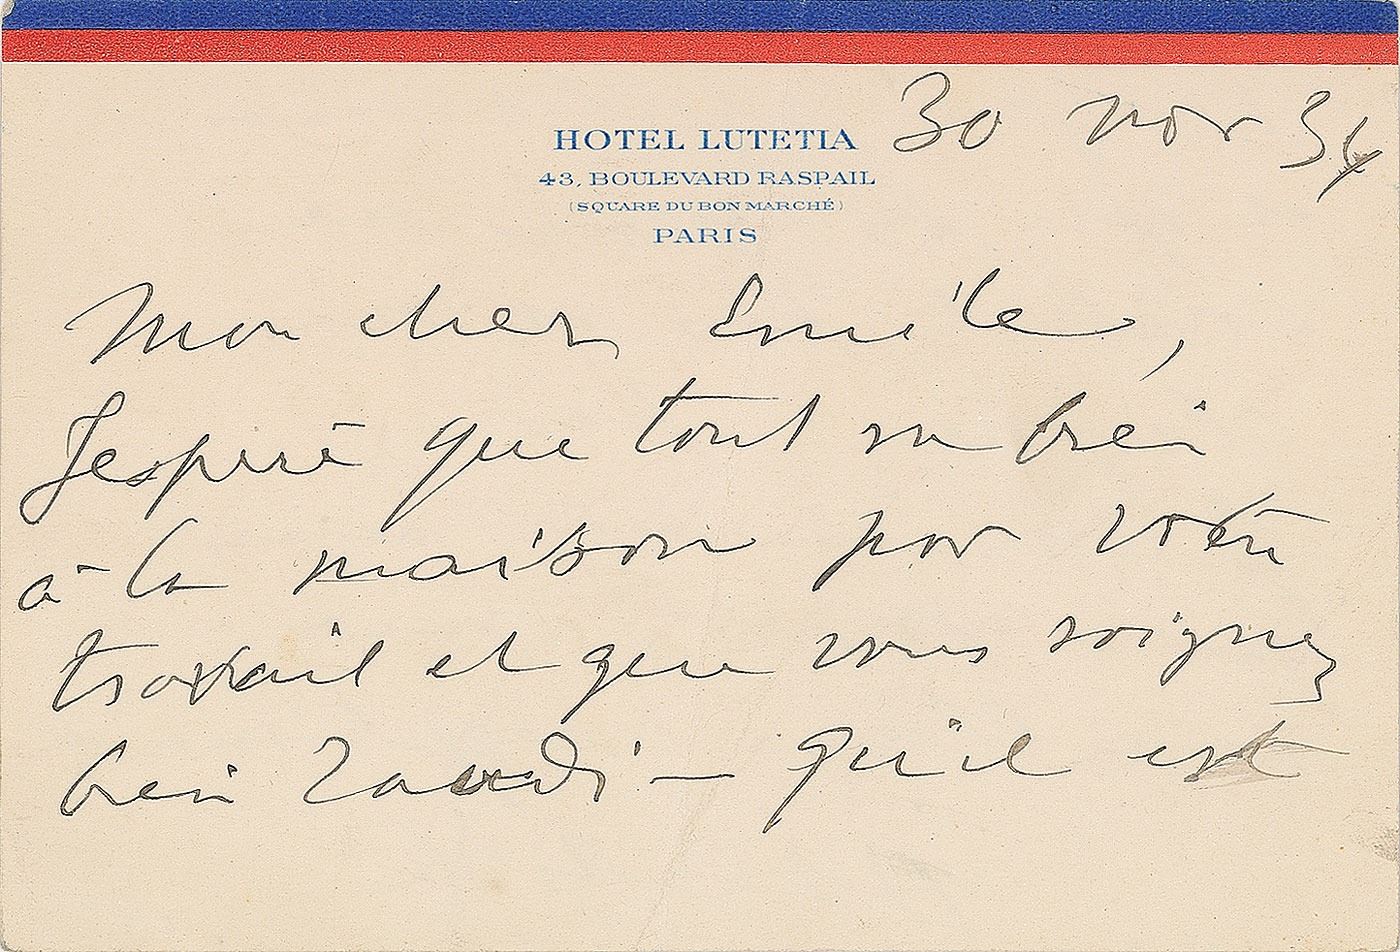 30 nov 34
HOTEL LUTETIA
43, BOULEVARD RASPAIL
(SQUARE DU BON MARCHÉ)
PARIS
Mon cher Emile,
Jespere que tout va bien
à la maison par votre
travail et que vous soignez
bien - qu'il est